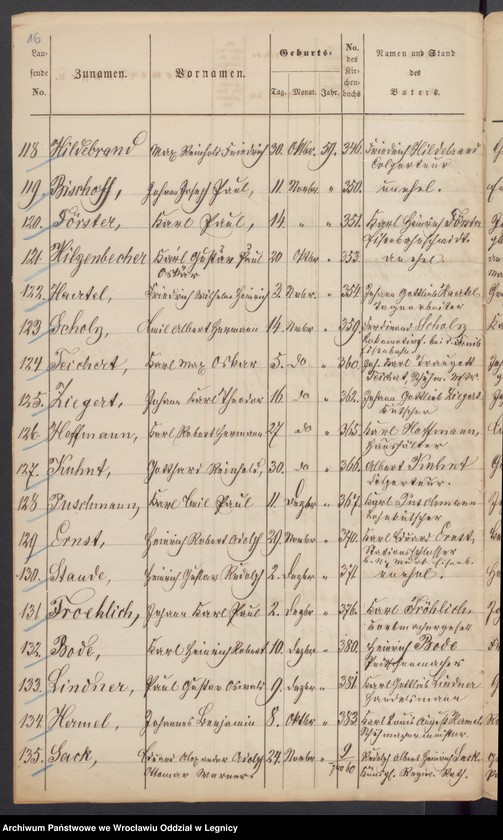 16
Lau-
fende
No.
Zunamen.
Vornamen.
Geburts-
Tag. Monat. Jahr.
No.
des
Kir-
chen-
buchs
Namen und Stand
des
Vaters.
118 Hildebrand Max Reinhold Friedrich 30. Oktbr. 59. 346. Friedrich Hildebrand
Colporteur
119 Bischoff, Johann Joseph Paul, 11. Novbr " 350. unehel.
120. Förster, Karl Paul, 14. " " 351. Karl Heinrich Förster
121. Hilgenbecher Karl Gustav Paul 20 Oktbr " 353. unehel.
Oskar
122. Haertel, Friedrich Wilhelm Heinrich 3. Novbr. " 354. Johann Gottlieb Haertel
Tagearbeiter
123 Scholz, Emil Albert Hermann 14. Novbr " 359. Ferdinand Scholz
124 Teichert, Karl Max Oskar 5. do " 360. Joh. Karl Traugott
Teichert,
125. Ziegert, Johann Karl Theodor 16 do " 362. Johann Gottlieb Ziegert
Kutscher
126 Hoffmann, Karl Robert Hermann 27 do " 365. Karl Hoffmann,
Haushälter
127. Kuhnt, Gotthard Reinhold, 30. do " 366. Albert Kuhnt
128 Puschmann, Karl Emil Paul 11. Dezbr " 367. Karl Puschmann
Lohnkutscher
129 Ernst, Heinrich Robert Adolf 29. Novbr " 370. Karl Eduard Ernst,
Stationsschlosser
130. Staude, Heinrich Gustav Rudolf 2. Dezbr " 371. unehel.
131 Froehlich, Johann Karl Paul 2. Dezbr " 376. Karl Fröhlich,
132. Bode, Karl Heinrich Robert 10. Dezbr " 380. Heinrich Bode
133. Lindner, Paul Gustav Oswald 9. Dezbr " 381 Karl Gottlieb Lindner
Handelsmann
134. Hamel, Johannes Benjamin 8. Oktbr " 383. Karl Louis August Hamel
Schuhmachermeister.
135. Sack, Eduard Alexander Adolf 24. Novbr " 9 Rudolf Albert Heinrich Sack
Ottomar Werner. pro 60 Königl. Regier. Rath.
Archiwum Państwowe we Wrocławiu Oddział w Legnicy